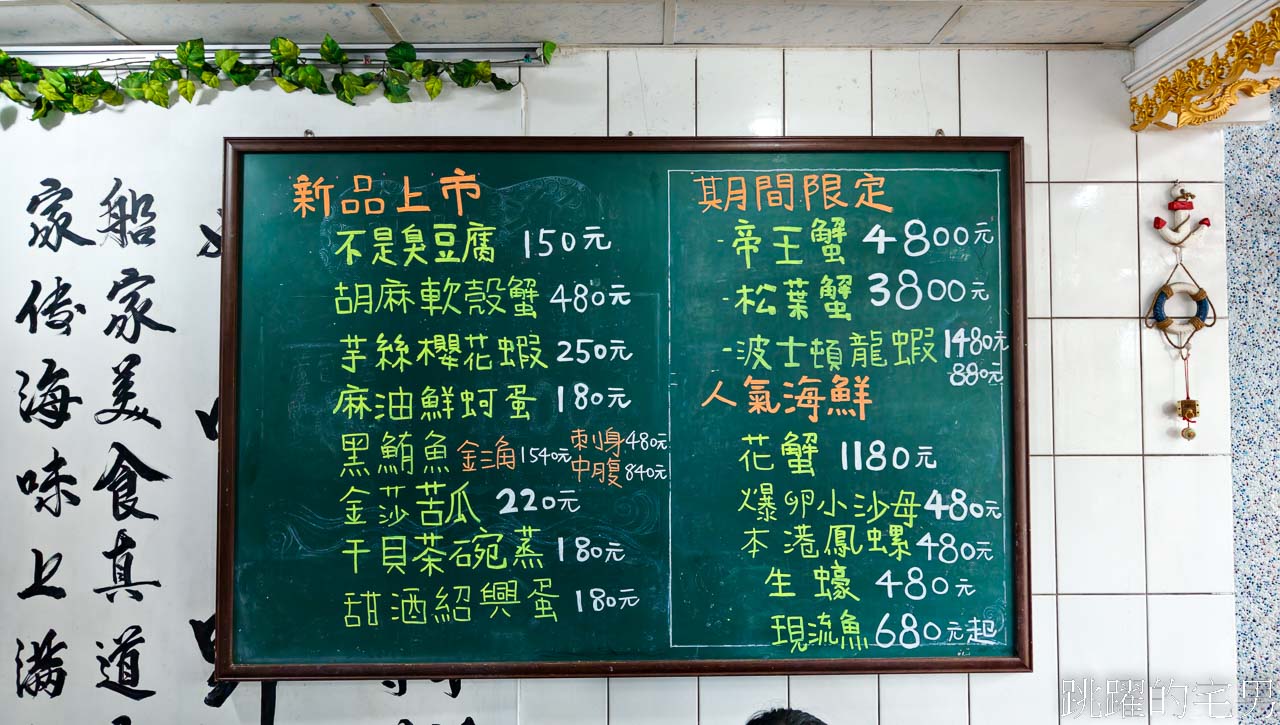 新品上市
不是臭豆腐 150元
胡麻軟殼蟹 480元
芋絲櫻花蝦 250元
麻油鮮蚵蛋 180元
黑鮪魚 金三角1540元 刺身480元
中腹840元
金莎苦瓜 220元
干貝茶碗蒸 180元
甜酒紹興蛋 180元
期間限定
-帝王蟹 4800元
-松葉蟹 3800元
-波士頓龍蝦 1480元
880元
人氣海鮮
花蟹 1180元
爆卵小沙母480元
本港鳳螺480元
生蠔 480元
現流魚680元起
船家美食真道
家传海味上满
跳躍的宅男